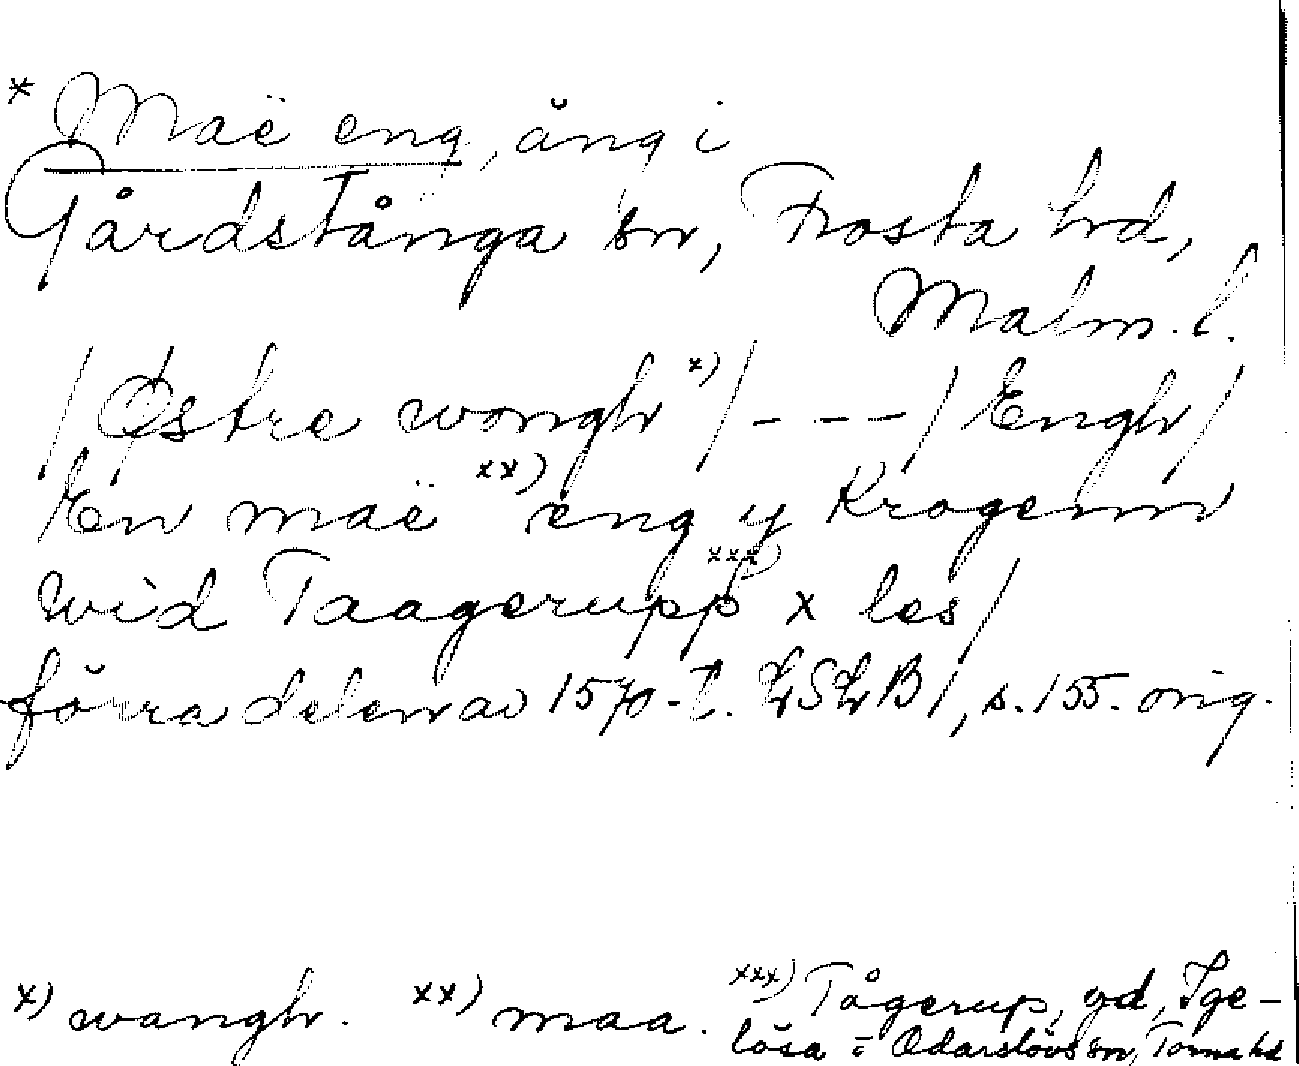 * Maë eng, äng i
Gårdstånga sn, Frosta hd,
Malm. l.
/Østre wongh x)/ - - - / Engh/
En maë xx) eng y Krogenn
wid Taagerupp xxx) x les/
förra delen av 1570-t. LSLB1, s. 155. orig.
x) wangh. xx) maa. xxx) Tågerup, gd, Ige-
lösa = Odarslövs sn, Torna hd